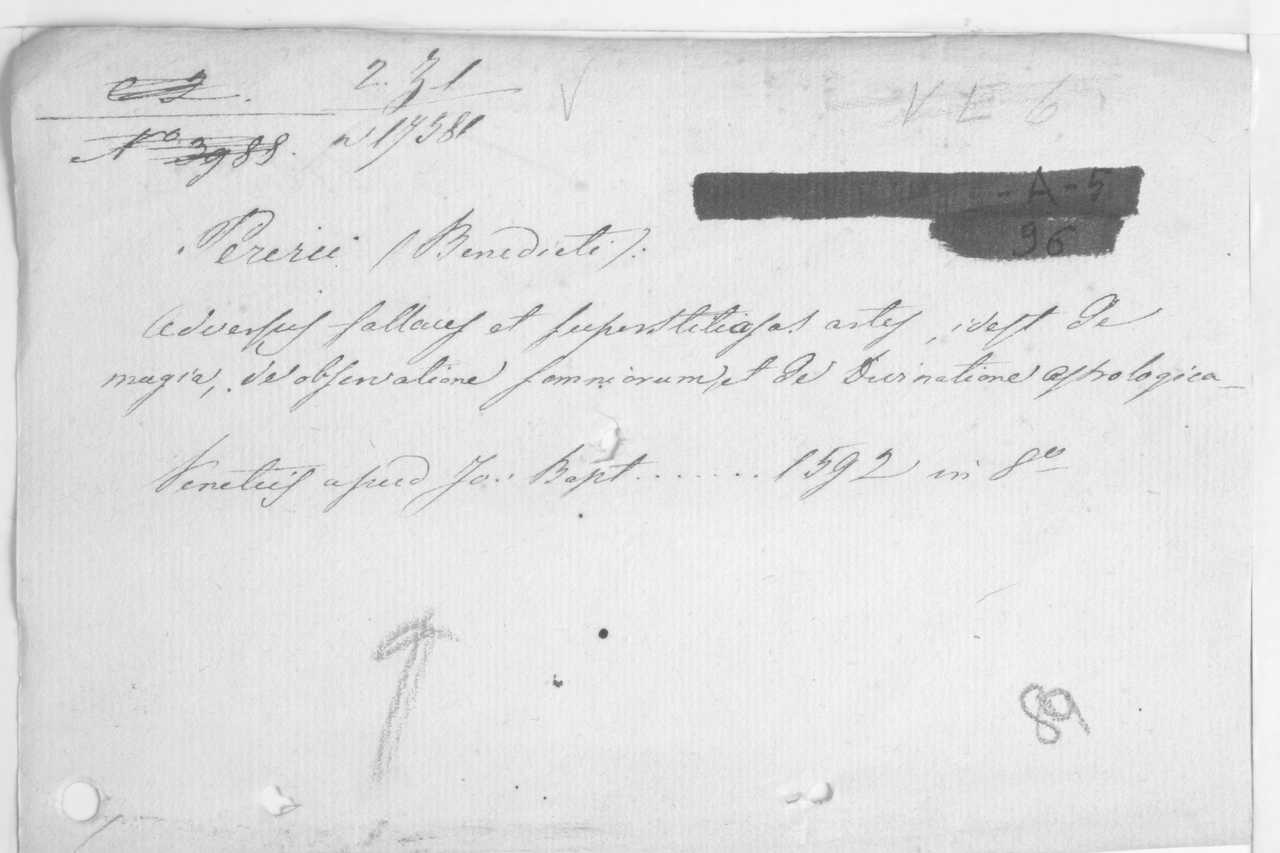 2. Z 1
V
V L 6
No 3988. n 17381
- A - 5
96
Pererii (Benedicti).
Adversus fallaces et superstitiosas artes, idest de
magia, de observatione somniorum, et de Divinatione astrologica_
Venetiis apud Jo: Bapt....... 1592 in 8o
89